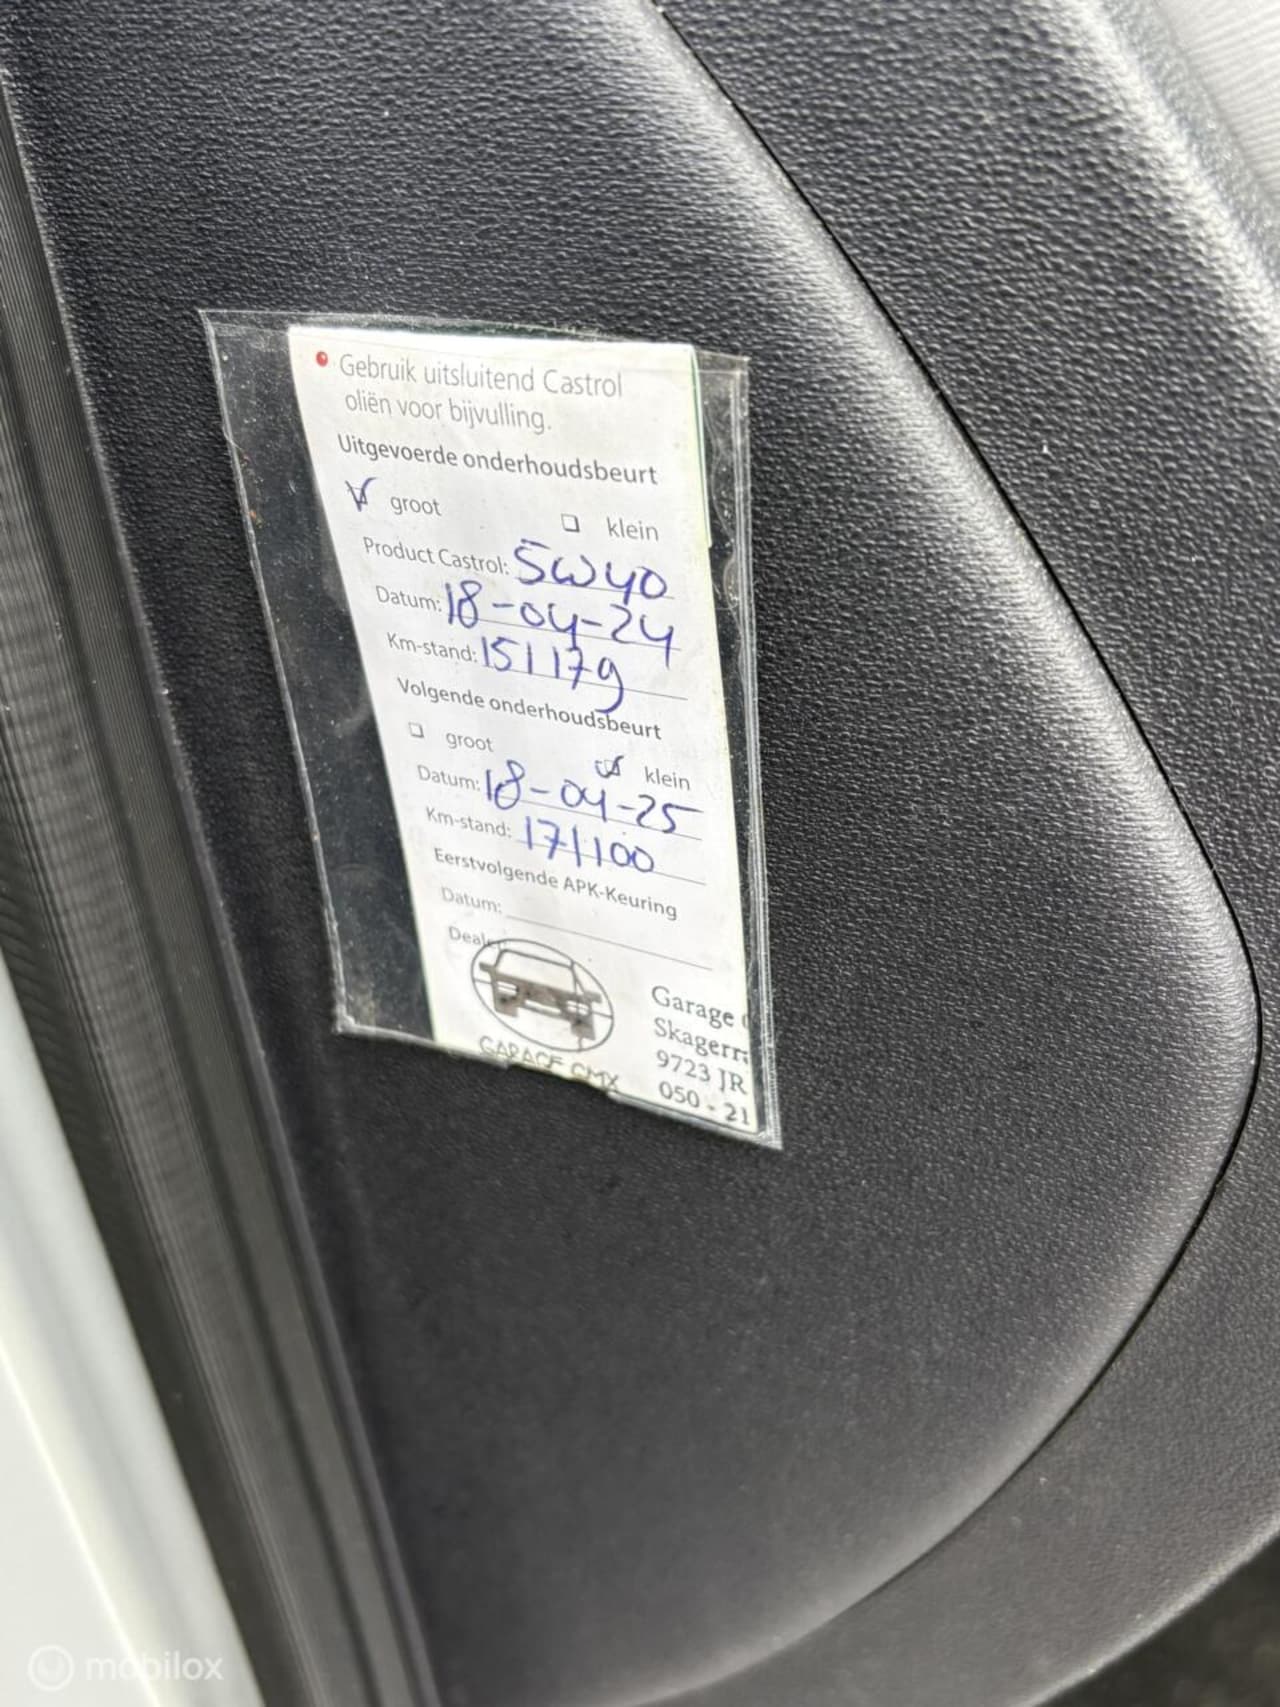 Gebruik uitsluitend Castrol
oliën voor bijvulling.
Uitgevoerde onderhoudsbeurt
groot klein
Product Castrol: 5W40
Datum: 18-04-24
Km-stand: 151179
Volgende onderhoudsbeurt
groot klein
Datum: 18-04-25
Km-stand: 171100
Eerstvolgende APK-Keuring
Datum:
Dealer
GARAGE CMX
Garage
Skagerr
9723 JR
050 - 21
mobilox